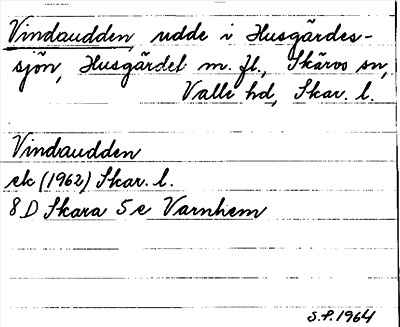 Vindaudden, udde i Husgärdes-
sjön, Husgärdet m. fl., Skärvs sn,
Valle hd, Skar. l.
Vindaudden
ek (1962) Skar. l.
8D Skara 5e Varnhem
S.P. 1964